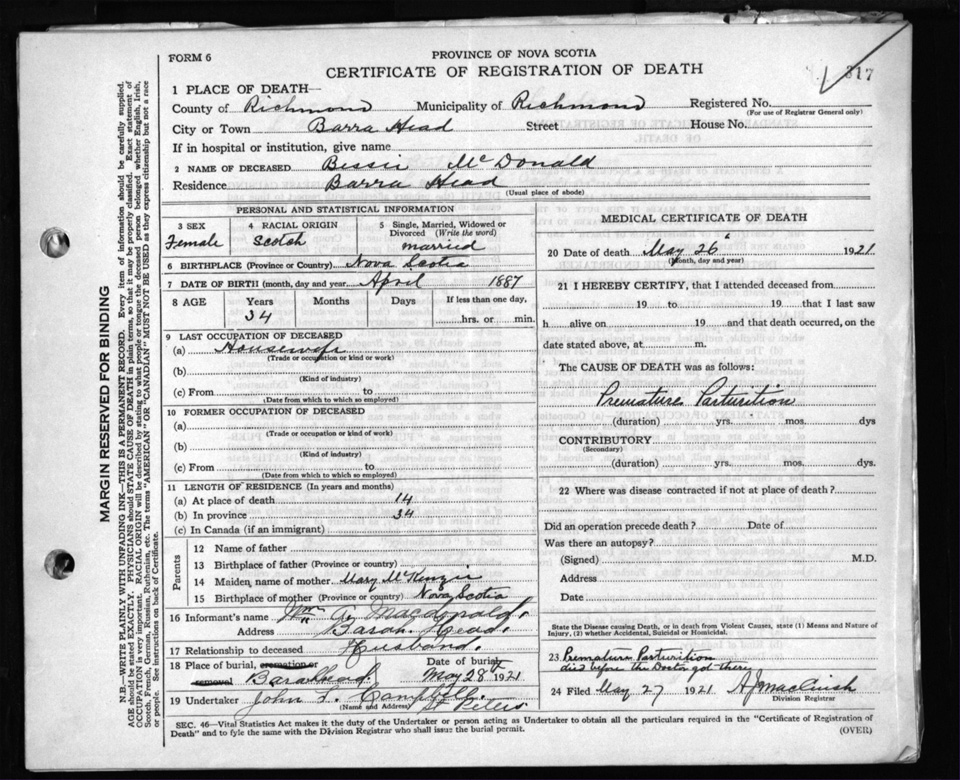 FORM 6
PROVINCE OF NOVA SCOTIA
CERTIFICATE OF REGISTRATION OF DEATH
317
1 PLACE OF DEATH—
County of Richmond Municipality of Richmond Registered No.
(For use of Registrar General only)
City or Town Barra Head Street House No.
If in hospital or institution, give name
2 NAME OF DECEASED Bessie McDonald
Residence Barra Head
(Usual place of abode)
PERSONAL AND STATISTICAL INFORMATION
3 SEX Female
4 RACIAL ORIGIN Scotch
5 Single, Married, Widowed or Divorced (Write the word) married
6 BIRTHPLACE (Province or Country) Nova Scotia
7 DATE OF BIRTH (month, day and year) April 1887
8 AGE Years Months Days If less than one day,
34 hrs. or min.
9 LAST OCCUPATION OF DECEASED
(a) Housewife
(Trade or occupation or kind of work)
(b)
(Kind of industry)
(c) From to
(Date from which to which so employed)
10 FORMER OCCUPATION OF DECEASED
(a)
(Trade or occupation or kind of work)
(b)
(Kind of industry)
(c) From to
(Date from which to which so employed)
11 LENGTH OF RESIDENCE (In years and months)
(a) At place of death 14
(b) In province 34
(c) In Canada (if an immigrant)
Parents
12 Name of father
13 Birthplace of father (Province or country)
14 Maiden name of mother Mary McKenzie
15 Birthplace of mother (Province or country) Nova Scotia
16 Informant's name Wm Macdonald.
Address Barah Head.
17 Relationship to deceased Husband.
18 Place of burial, cremation or removal Barahhead. Date of burial May 28 1921
19 Undertaker John Campbell. St Peters
(Name and Address)
MEDICAL CERTIFICATE OF DEATH
20 Date of death May 26 1921
(Month, day and year)
21 I HEREBY CERTIFY, that I attended deceased from
19 to 19 that I last saw
h alive on 19 and that death occurred, on
date stated above, at m.
The CAUSE OF DEATH was as follows:
Premature Parturition
(duration) yrs. mos. dys
CONTRIBUTORY
(Secondary)
(duration) yrs. mos. dys.
22 Where was disease contracted if not at place of death?
Did an operation precede death? Date of
Was there an autopsy?
(Signed) M.D.
Address
Date
State the Disease causing Death, or in death from Violent Causes, state (1) Means and Nature of
Injury, (2) whether Accidental, Suicidal or Homicidal.
23 Premature Parturition
died before the Doctor got there
24 Filed May 27 1921
Division Registrar
SEC. 46—Vital Statistics Act makes it the duty of the Undertaker or person acting as Undertaker to obtain all the particulars required in the "Certificate of Registration of
Death" and to fyle the same with the Division Registrar who shall issue the burial permit.
(OVER)
MARGIN RESERVED FOR BINDING
N.B.—WRITE PLAINLY WITH UNFADING INK—THIS IS A PERMANENT RECORD. Every item of information should be carefully supplied.
AGE should be stated EXACTLY. PHYSICIANS should STATE CAUSE OF DEATH in plain terms, so that it may be properly classified. Exact statement of
OCCUPATION is very important. RACIAL ORIGIN will be described by stating to what people or tongue the deceased person belonged whether English, Irish,
Scotch, French, German, Russian, Ruthenian, etc. The terms "AMERICAN" OR "CANADIAN" MUST NOT BE USED as they express citizenship but not a race
or people. See instructions on back of Certificate.